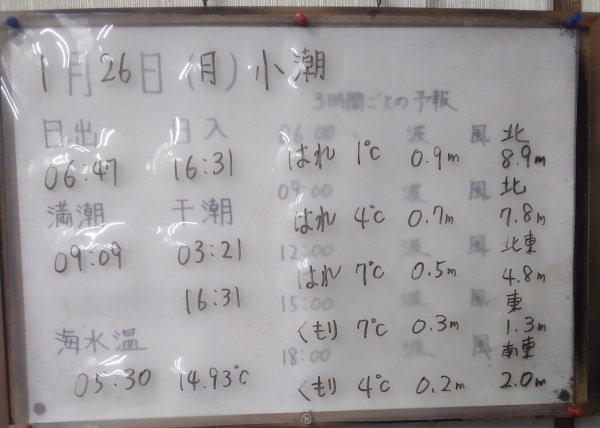 1月26日(月)小潮
3時間ごとの予報
日出 日入
06:47 16:31
満潮 干潮
09:09 03:21
16:31
海水温
05:30 14.93℃
06:00 波 風 北
はれ 1℃ 0.9m 8.9m
09:00 波 風 北
はれ 4℃ 0.7m 7.8m
12:00 波 風 北東
はれ 7℃ 0.5m 4.8m
15:00 波 風 東
くもり 7℃ 0.3m 1.3m
18:00 波 風 南東
くもり 4℃ 0.2m 2.0m